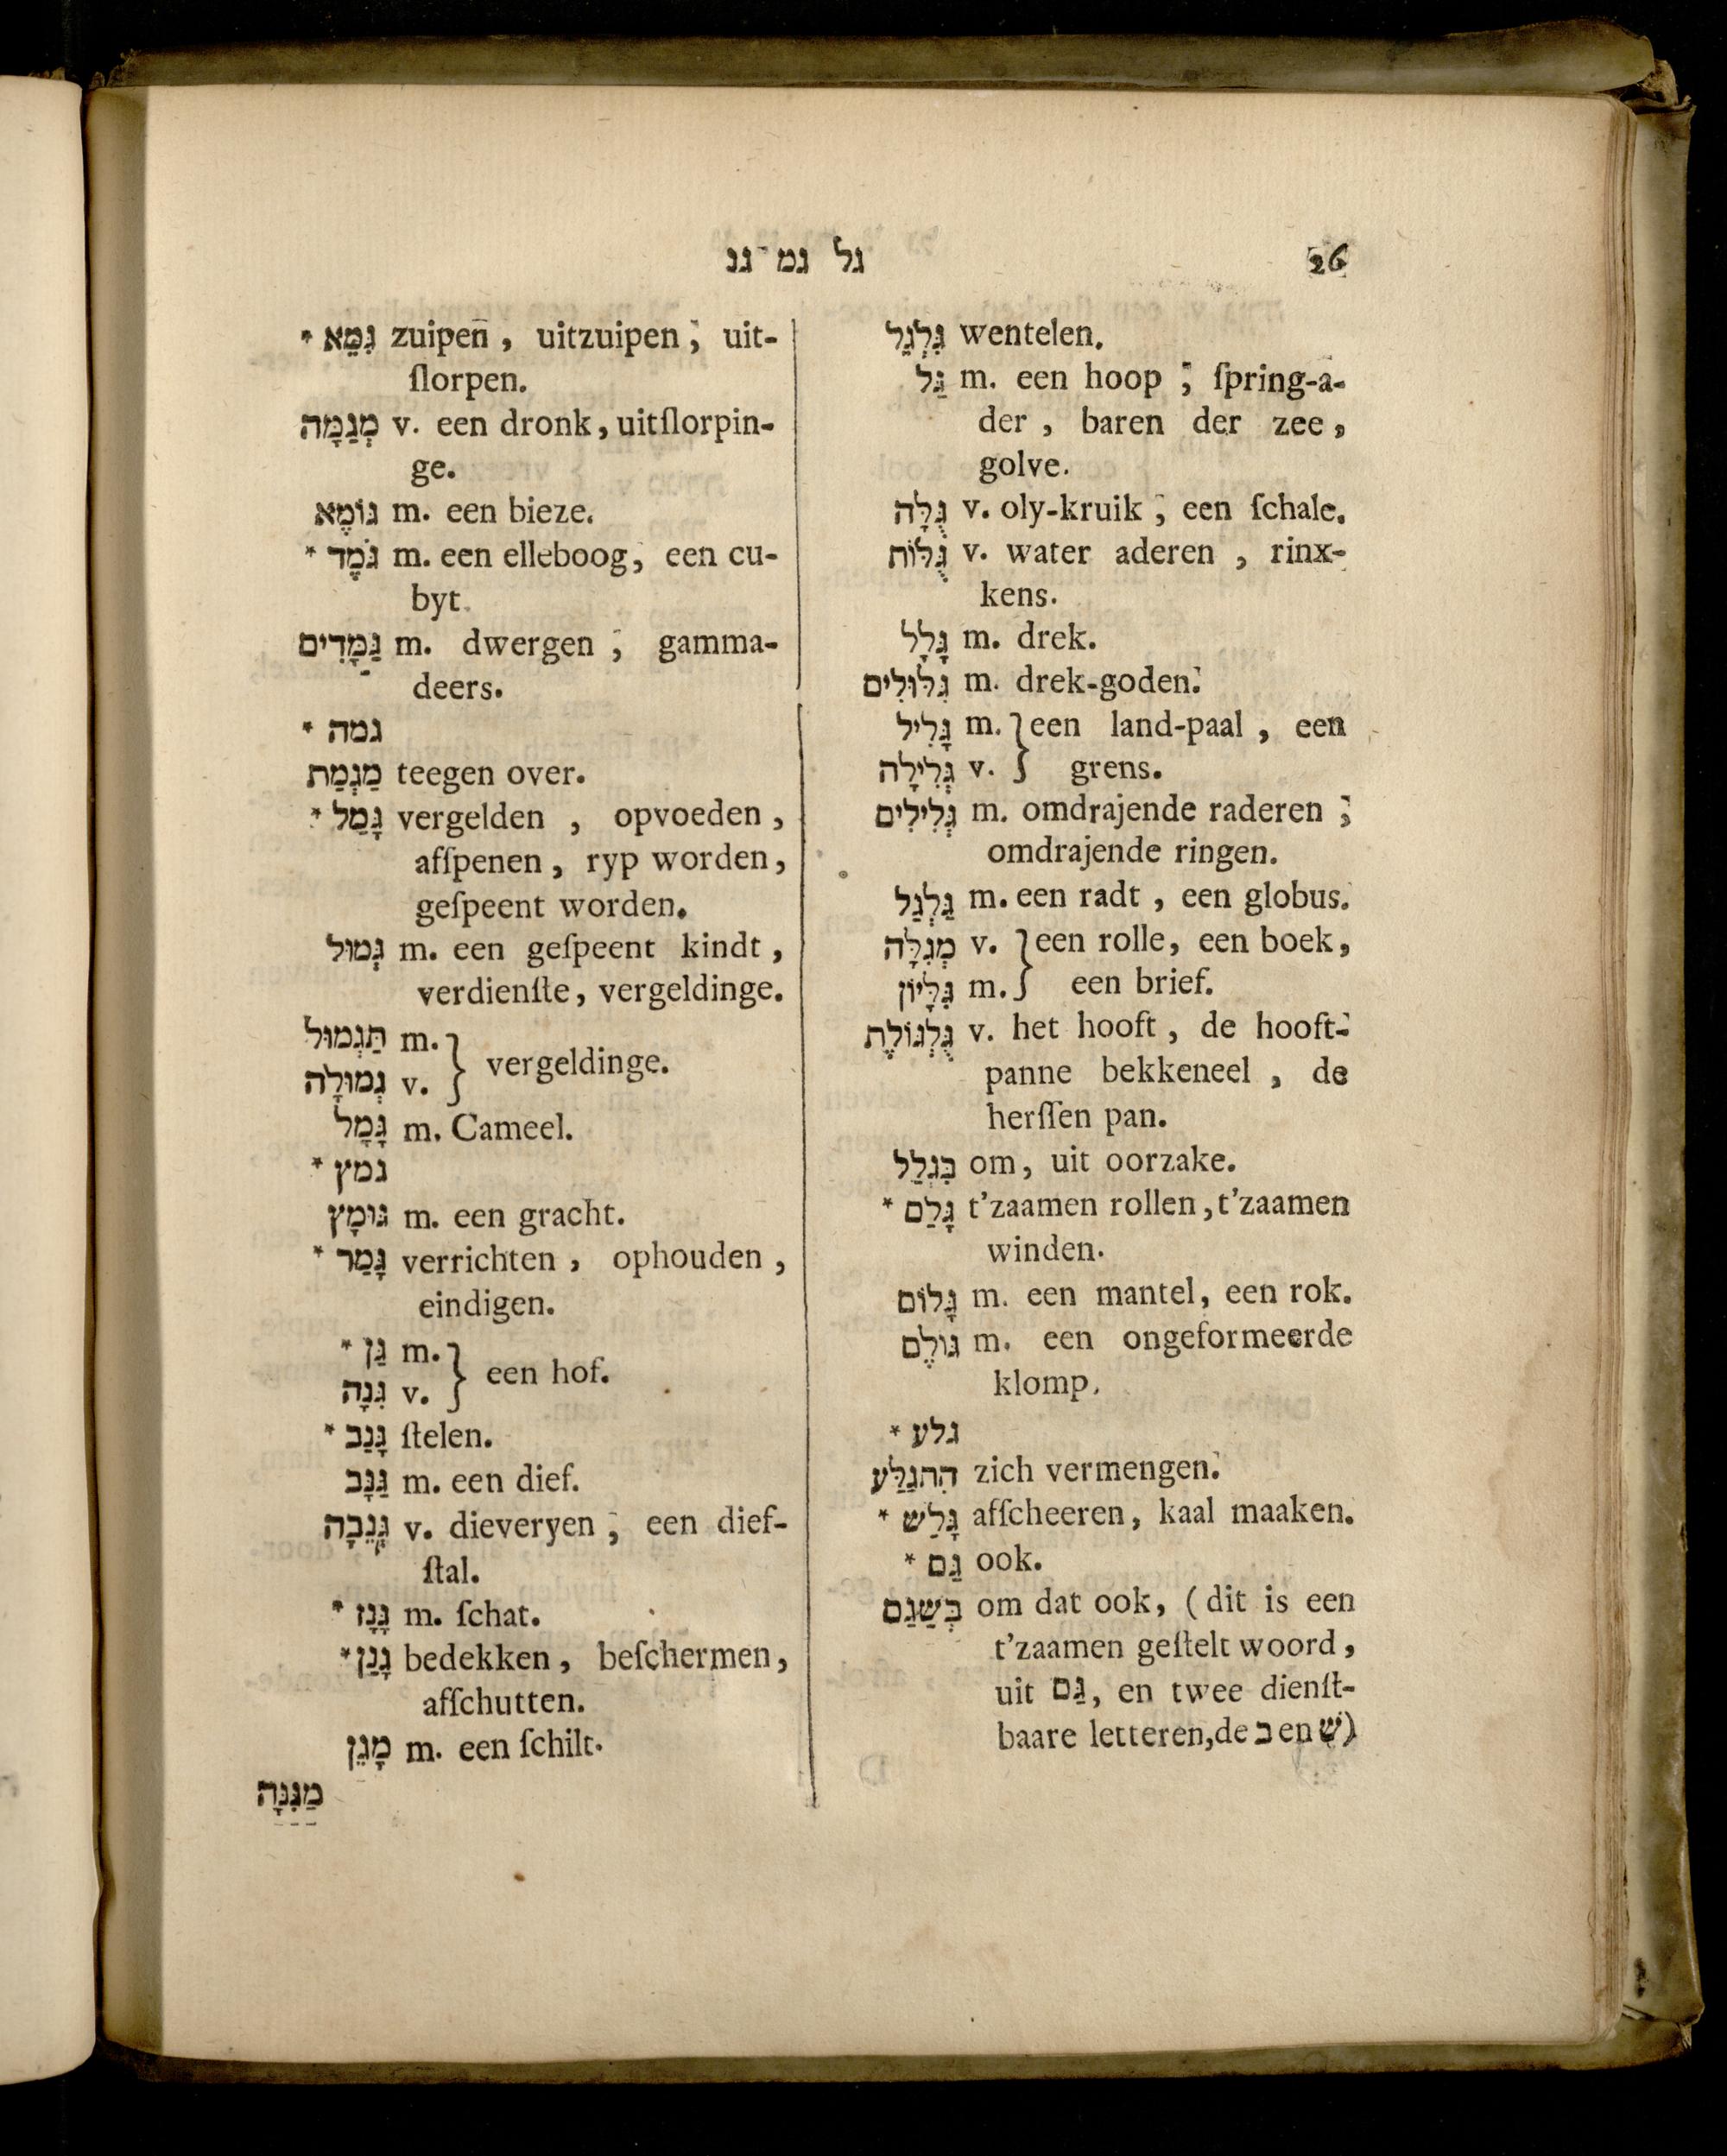 גל גמ גנ 26
גִּלְגֵּל wentelen.
גַּל m. een hoop ; ſpring-a-
der , baren der zee ,
golve.
גֻּלָּה v. oly-kruik ; een ſchale.
גֻּלּוֹת v. water aderen , rinx-
kens.
גָּלָל m. drek.
גִּלּוּלִים m. drek-goden.
גָּלִיל m. } een land-paal , een
גְּלִילָה v. } grens.
גְּלִילִים m. omdrajende raderen ;
omdrajende ringen.
גַּלְגַּל m. een radt , een globus.
מְגִלָּה v. } een rolle, een boek,
גִּלָּיוֹן m. } een brief.
גֻּלְגּוֹלֶת v. het hooft , de hooft-
panne bekkeneel , de
herſſen pan.
בִּגְלַל om, uit oorzake.
* גָּלַם t'zaamen rollen, t'zaamen
winden.
גָּלוֹם m. een mantel, een rok.
גּוֹלֶם m. een ongeformeerde
klomp.
* גלע
הִתְגַּלַּע zich vermengen.
* גָּלַשׁ afſcheeren, kaal maaken.
* גַּם ook.
בְּשַׁגַּם om dat ook, (dit is een
t'zaamen geſtelt woord,
uit גַּם, en twee dienſt-
baare letteren,de ב en שׁ)
* גִּמֵּא zuipen , uitzuipen ; uit-
ſlorpen.
מְגַמָּה v. een dronk, uitſlorpin-
ge.
גּוֹמֶא m. een bieze.
* גֹּמֶד m. een elleboog, een cu-
byt.
גַּמָּדִים m. dwergen ; gamma-
deers.
* גמה
מַגְמַת teegen over.
* גָּמַל vergelden , opvoeden ,
afſpenen , ryp worden,
geſpeent worden.
גְּמוּל m. een geſpeent kindt ,
verdienſte, vergeldinge.
תַּגְמוּל m. } vergeldinge.
גְּמוּלָה v. }
גָּמָל m. Cameel.
* גמץ
גּוּמָץ m. een gracht.
* גָּמַר verrichten , ophouden ,
eindigen.
* גַּן m. } een hof.
גִּנָּה v. }
* גָּנַב ſtelen.
גַּנָּב m. een dief.
גְּנֵבָה v. dieveryen ; een dief-
ſtal.
* גָּנָז m. ſchat.
* גָּנַן bedekken , beſchermen,
afſchutten.
מָגֵן m. een ſchilt.
מַגִּנָּה